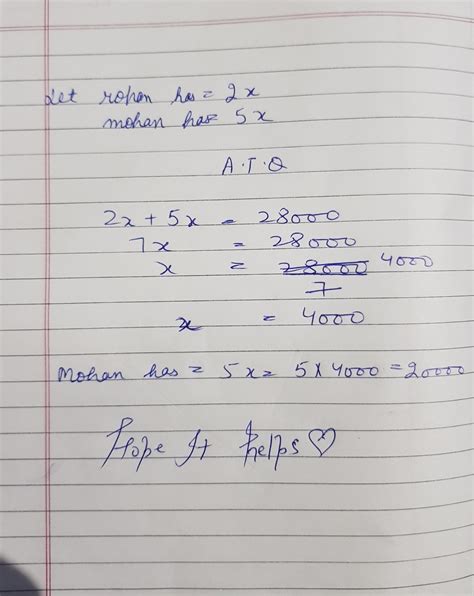 Let rohan has = 2x
mohan has = 5x
A.T.Q
2x + 5x = 28000
7x = 28000
x = 28000 4000
7
x = 4000
Mohan has = 5x = 5 X 4000 = 20000
Hope It helps ♡